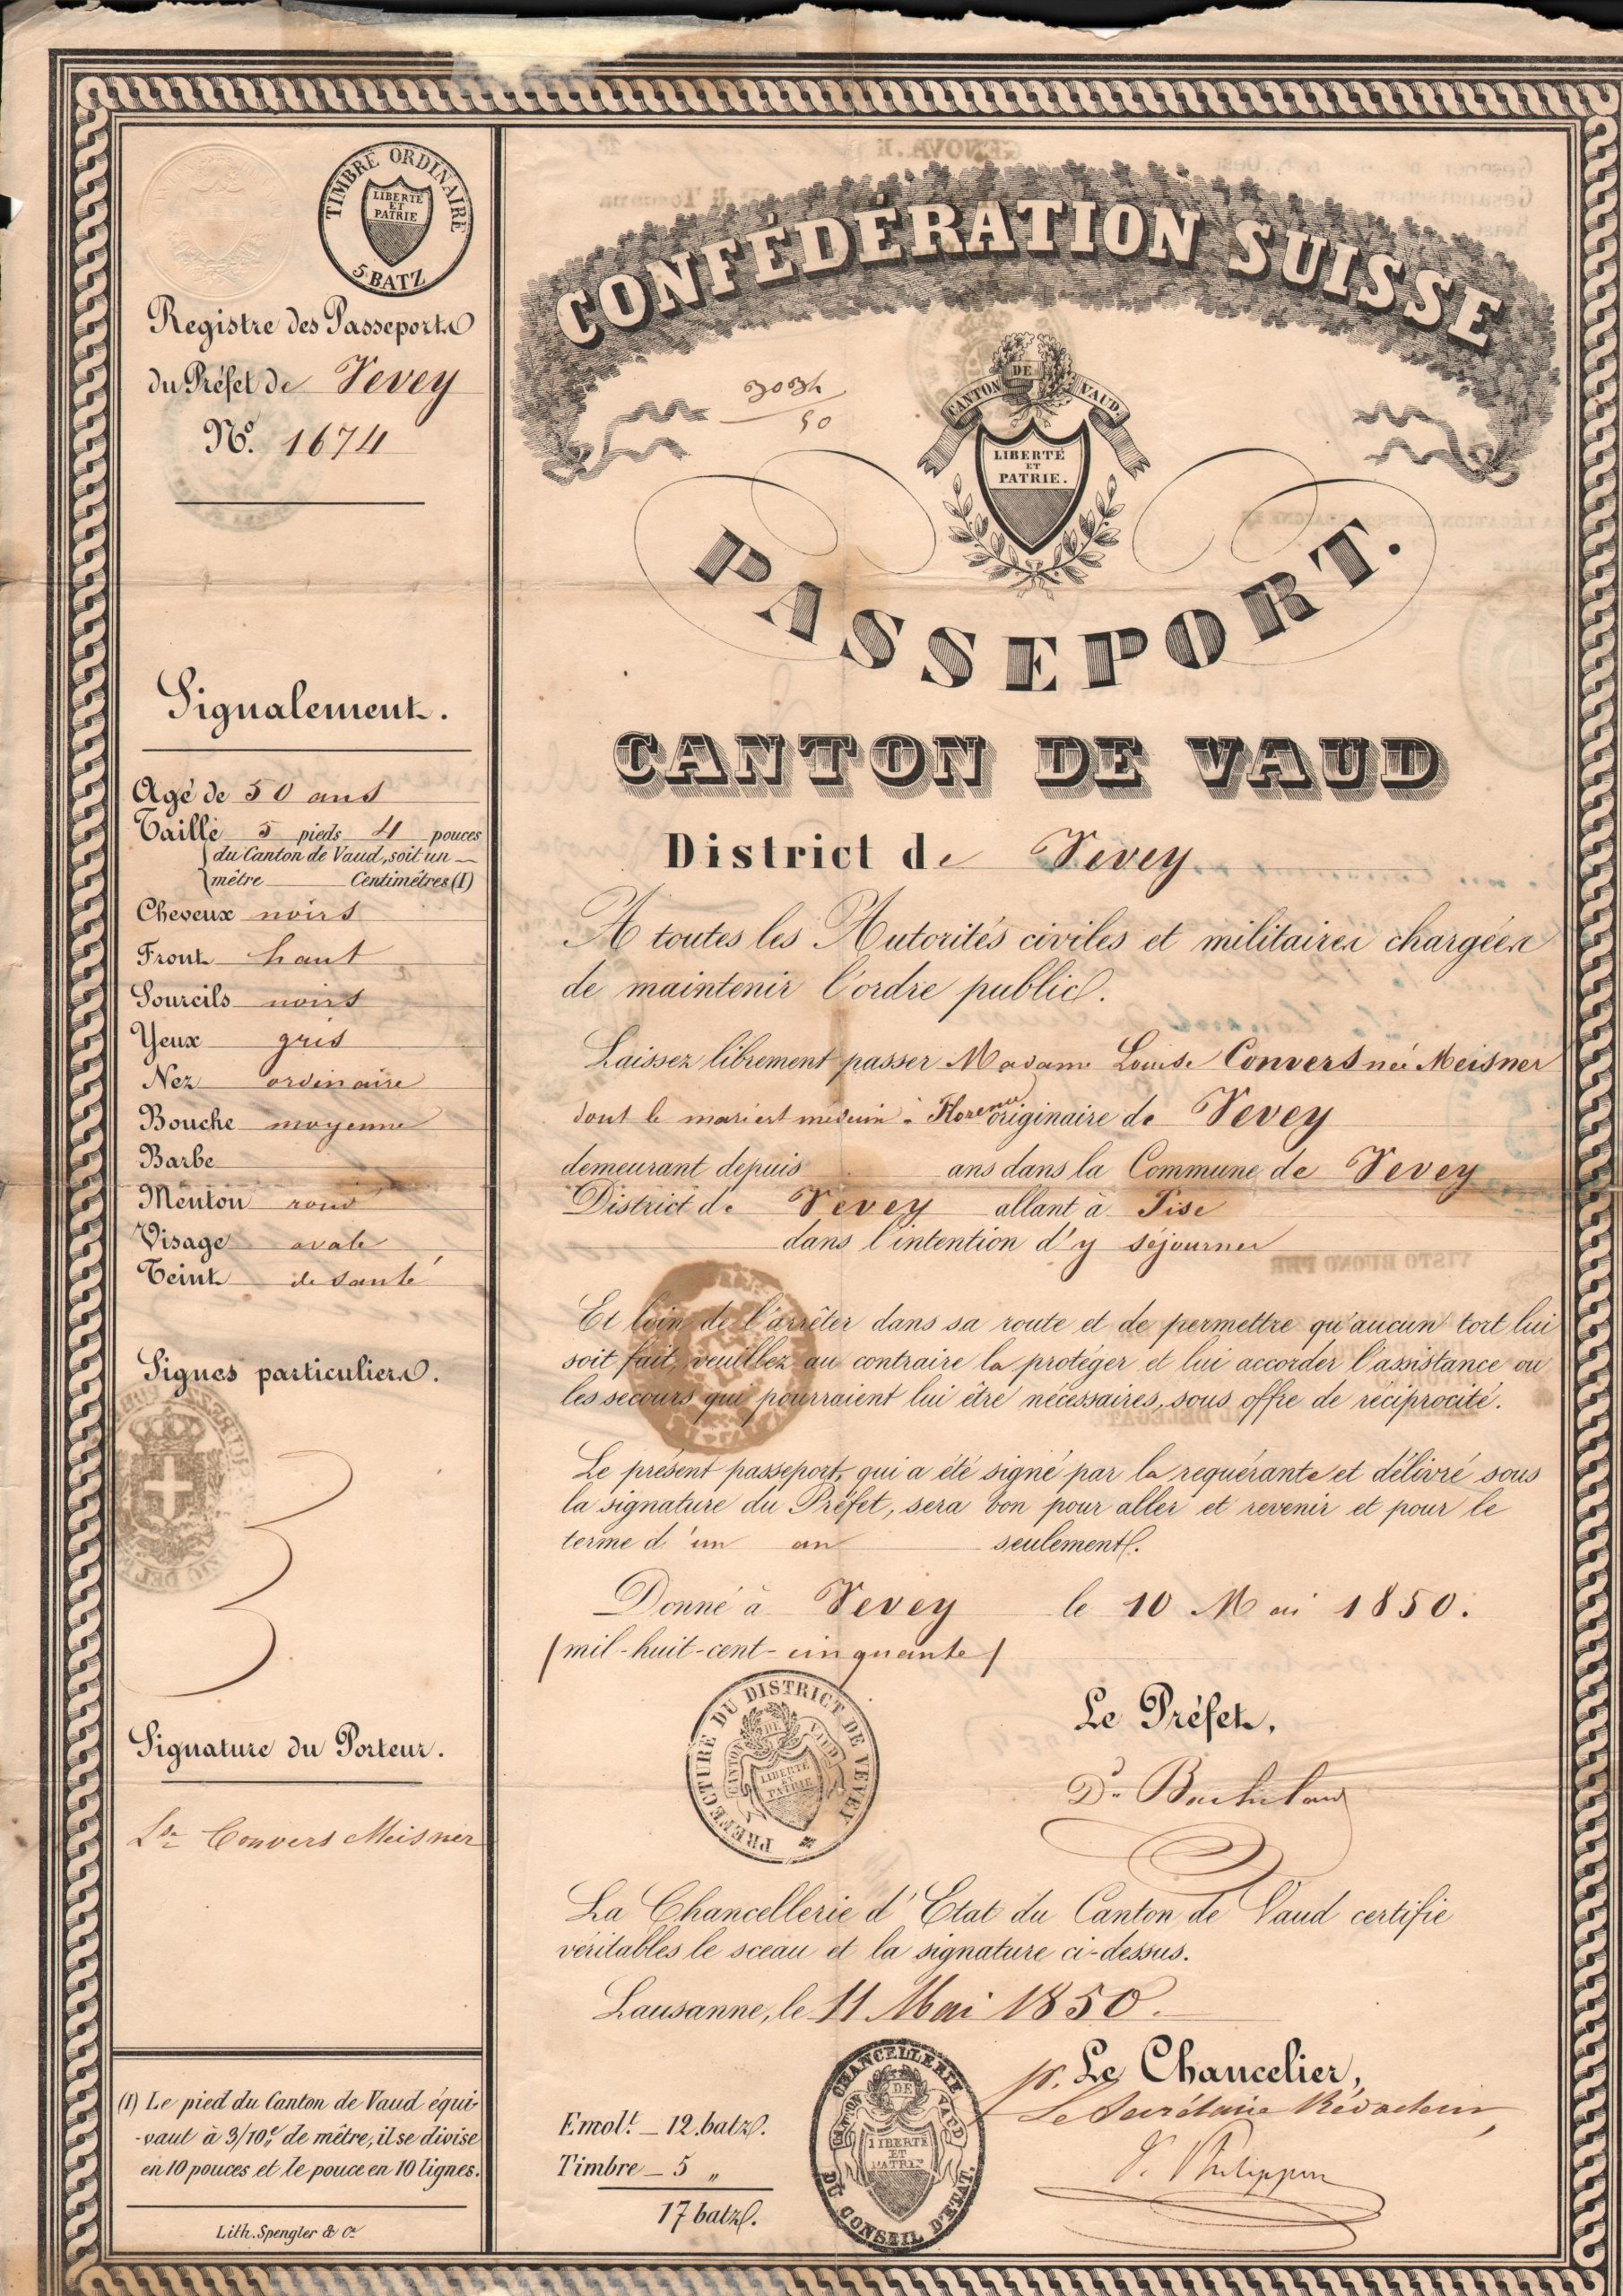 TIMBRE ORDINAIRE
LIBERTÉ
ET
PATRIE
5 BATZ
Registre des Passeports
du Préfet de Vevey
Nº. 1674
Signalement.
Agé de 50 ans
Taille 5 pieds 4 pouces
du Canton de Vaud, soit un
mètre Centimètres (1)
Cheveux noirs
Front haut
Sourcils noirs
Yeux gris
Nez ordinaire
Bouche moyenne
Barbe
Menton rond
Visage ovale
Teint de santé
Signes particuliers.
Signature du Porteur.
Lse Convers Meisner
(1) Le pied du Canton de Vaud équi-
-vaut à 3/10e. de mètre, il se divise
en 10 pouces et le pouce en 10 lignes.
Lith. Spengler & Ce
CONFÉDÉRATION SUISSE
3034
50
CANTON DE VAUD.
LIBERTÉ
ET
PATRIE.
PASSEPORT.
CANTON DE VAUD
District de Vevey
A toutes les Autorités civiles et militaires chargées
de maintenir l'ordre public.
Laissez librement passer Madame Louise Convers née Meisner
dont le mari est médecin à Florence originaire de Vevey
demeurant depuis ans dans la Commune de Vevey
District de Vevey allant à Pise
dans l'intention d'y séjourner
Et loin de l'arrêter dans sa route et de permettre qu'aucun tort lui
soit fait, veuillez au contraire la protéger et lui accorder l'assistance ou
les secours qui pourraient lui être nécessaires, sous offre de réciprocité.
Le présent passeport, qui a été signé par la requérante et délivré sous
la signature du Préfet, sera bon pour aller et revenir et pour le
terme d'un an seulement.
Donné à Vevey le 10 Mai 1850.
(mil-huit-cent-cinquante)
PREFECTURE DU DISTRICT DE VEVEY
CANTON DE VAUD
LIBERTÉ
ET
PATRIE
Le Préfet,
La Chancellerie d'Etat du Canton de Vaud certifie
véritables le sceau et la signature ci-dessus.
Lausanne, le 11 Mai 1850.
CHANCELLERIE DU CONSEIL D'ETAT.
CANTON DE VAUD
LIBERTÉ
ET
PATRIE
p. Le Chancelier,
Le Secrétaire Rédacteur,
Emolt. 12. batz.
Timbre 5 "
17 batz.